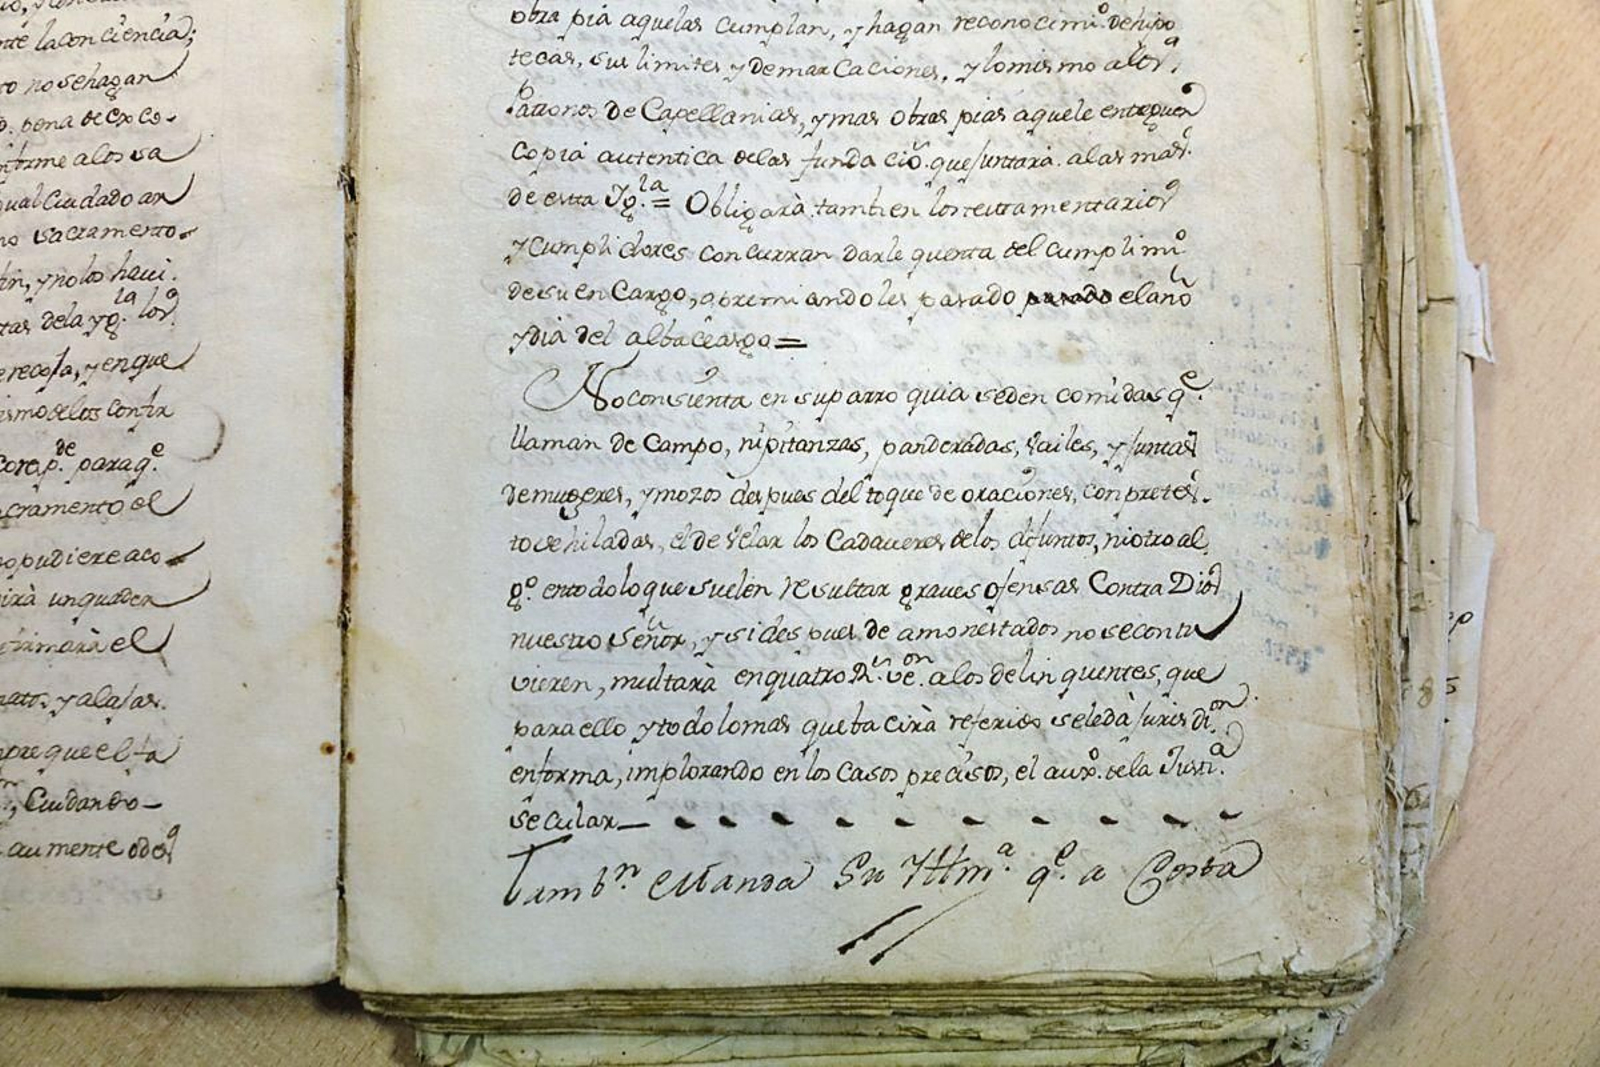 nte la conciencia;
to no se hagan
pena de exco-
nforme a los sa
qual Cuidado an
no sacramento-
fin, y no los havi.
tas de la yg.la los
e recosa, y en que
ismo de los confir
para q.e
cramento el
no pudiere aco-
irà un quader
firmarà el
natos y alajas.
pre que el ta
, Cuidando-
aumente o des
obra pia aque las cumplan, y hagan reconocim.o de hipo
tecas, sus limites y demarcaciones, y lo mismo a los
Patronos de Capellanias, y mas obras pias a que le entreguen
copia autentica de las fundacio.s que juntarà a las mas.
de esta Yg.la = Obligarà tambien los testamentarios
y cumplidores concurran darle quenta del cumplim.o
de su en Cargo, apremiandoles pasado pasado el año
y dia del albaceasgo =
No consienta en su parroquia se den comidas q.e
llaman de Campo, ni pitanzas, panderadas, vailes, y juntas
de mugeres, y mozos despues del toque de oraciones, con pretes-
to de hiladas, el de velar los Cadaveres de los difuntos, ni otro al
g.o en todo lo que suelen resultar graves ofensas Contra Dios
nuestro señor, y si despues de amonestados no se contu
vieren, multarà en quatro R.s ve.on a los delinquentes, que
para ello y todo lo mas que ba cirà referido se le dà jurisdi.on
en forma, implorando en los casos precisos, el aux.o de la Justi.a
secular_ - - - - - - - - - -
Tamb.n Manda Su Yllm.a q.e a Costa